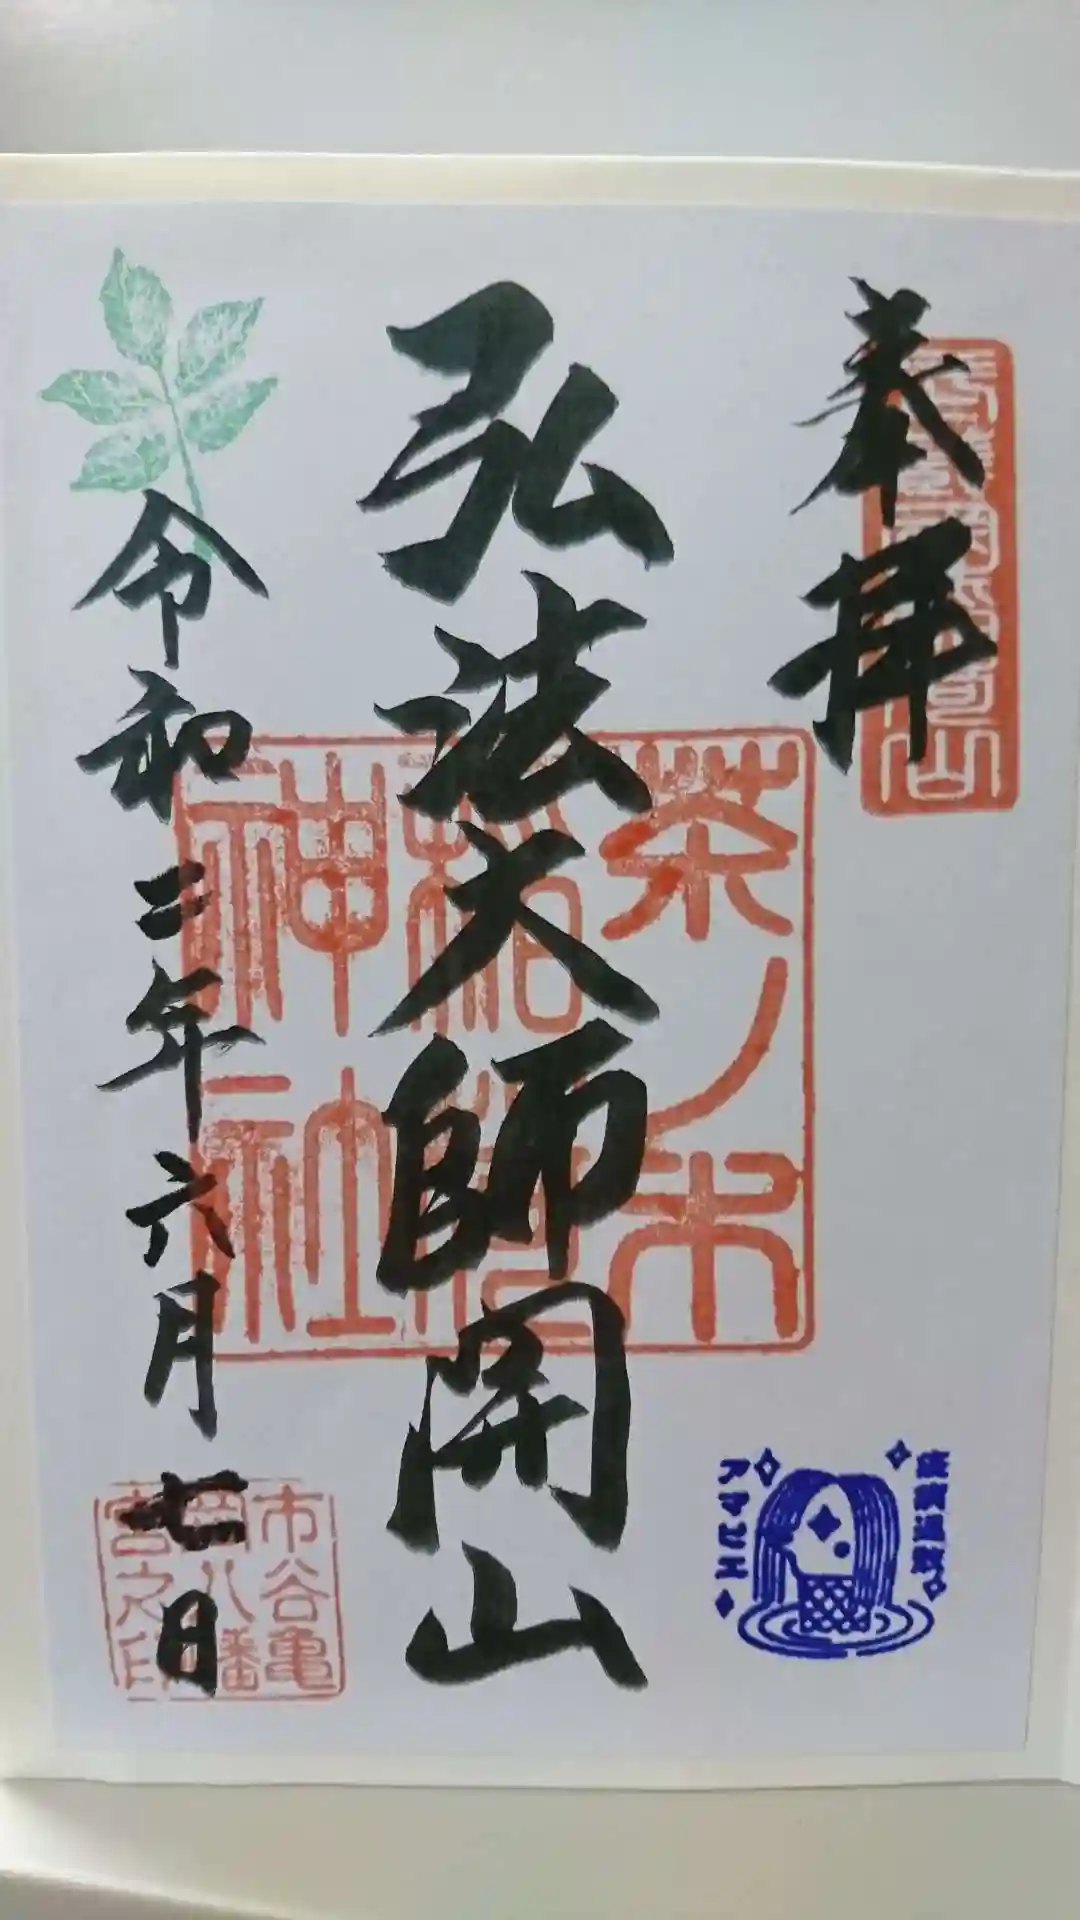 奉拝
弘法大師開山
茶ノ木
稲荷
神社
令和二年六月七日
市谷亀
岡八幡
宮之印
疫病退散
アマビエ